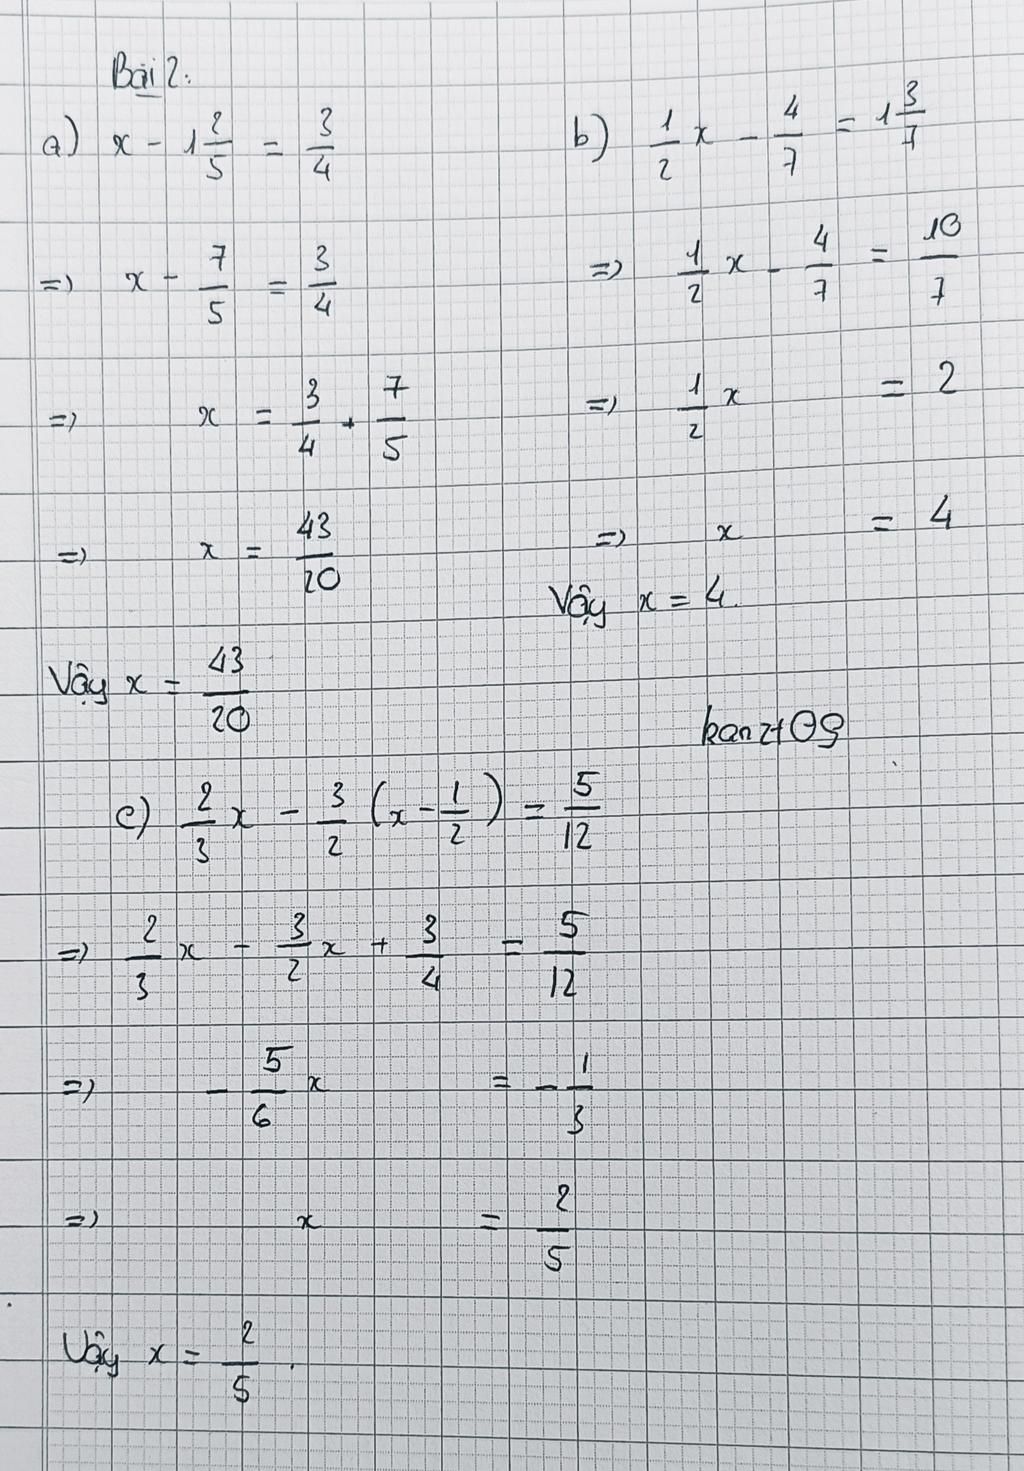 Bài 2:
a) x - 1 2/5 = 3/4
=> x - 7/5 = 3/4
=> x = 3/4 + 7/5
=> x = 43/20
Vậy x = 43/20
b) 1/2 x - 4/7 = 1 3/7
=> 1/2 x - 4/7 = 10/7
=> 1/2 x = 2
=> x = 4
Vậy x = 4.
c) 2/3 x - 3/2 (x - 1/2) = 5/12
=> 2/3 x - 3/2 x + 3/4 = 5/12
=> - 5/6 x = - 1/3
=> x = 2/5
Vậy x = 2/5.